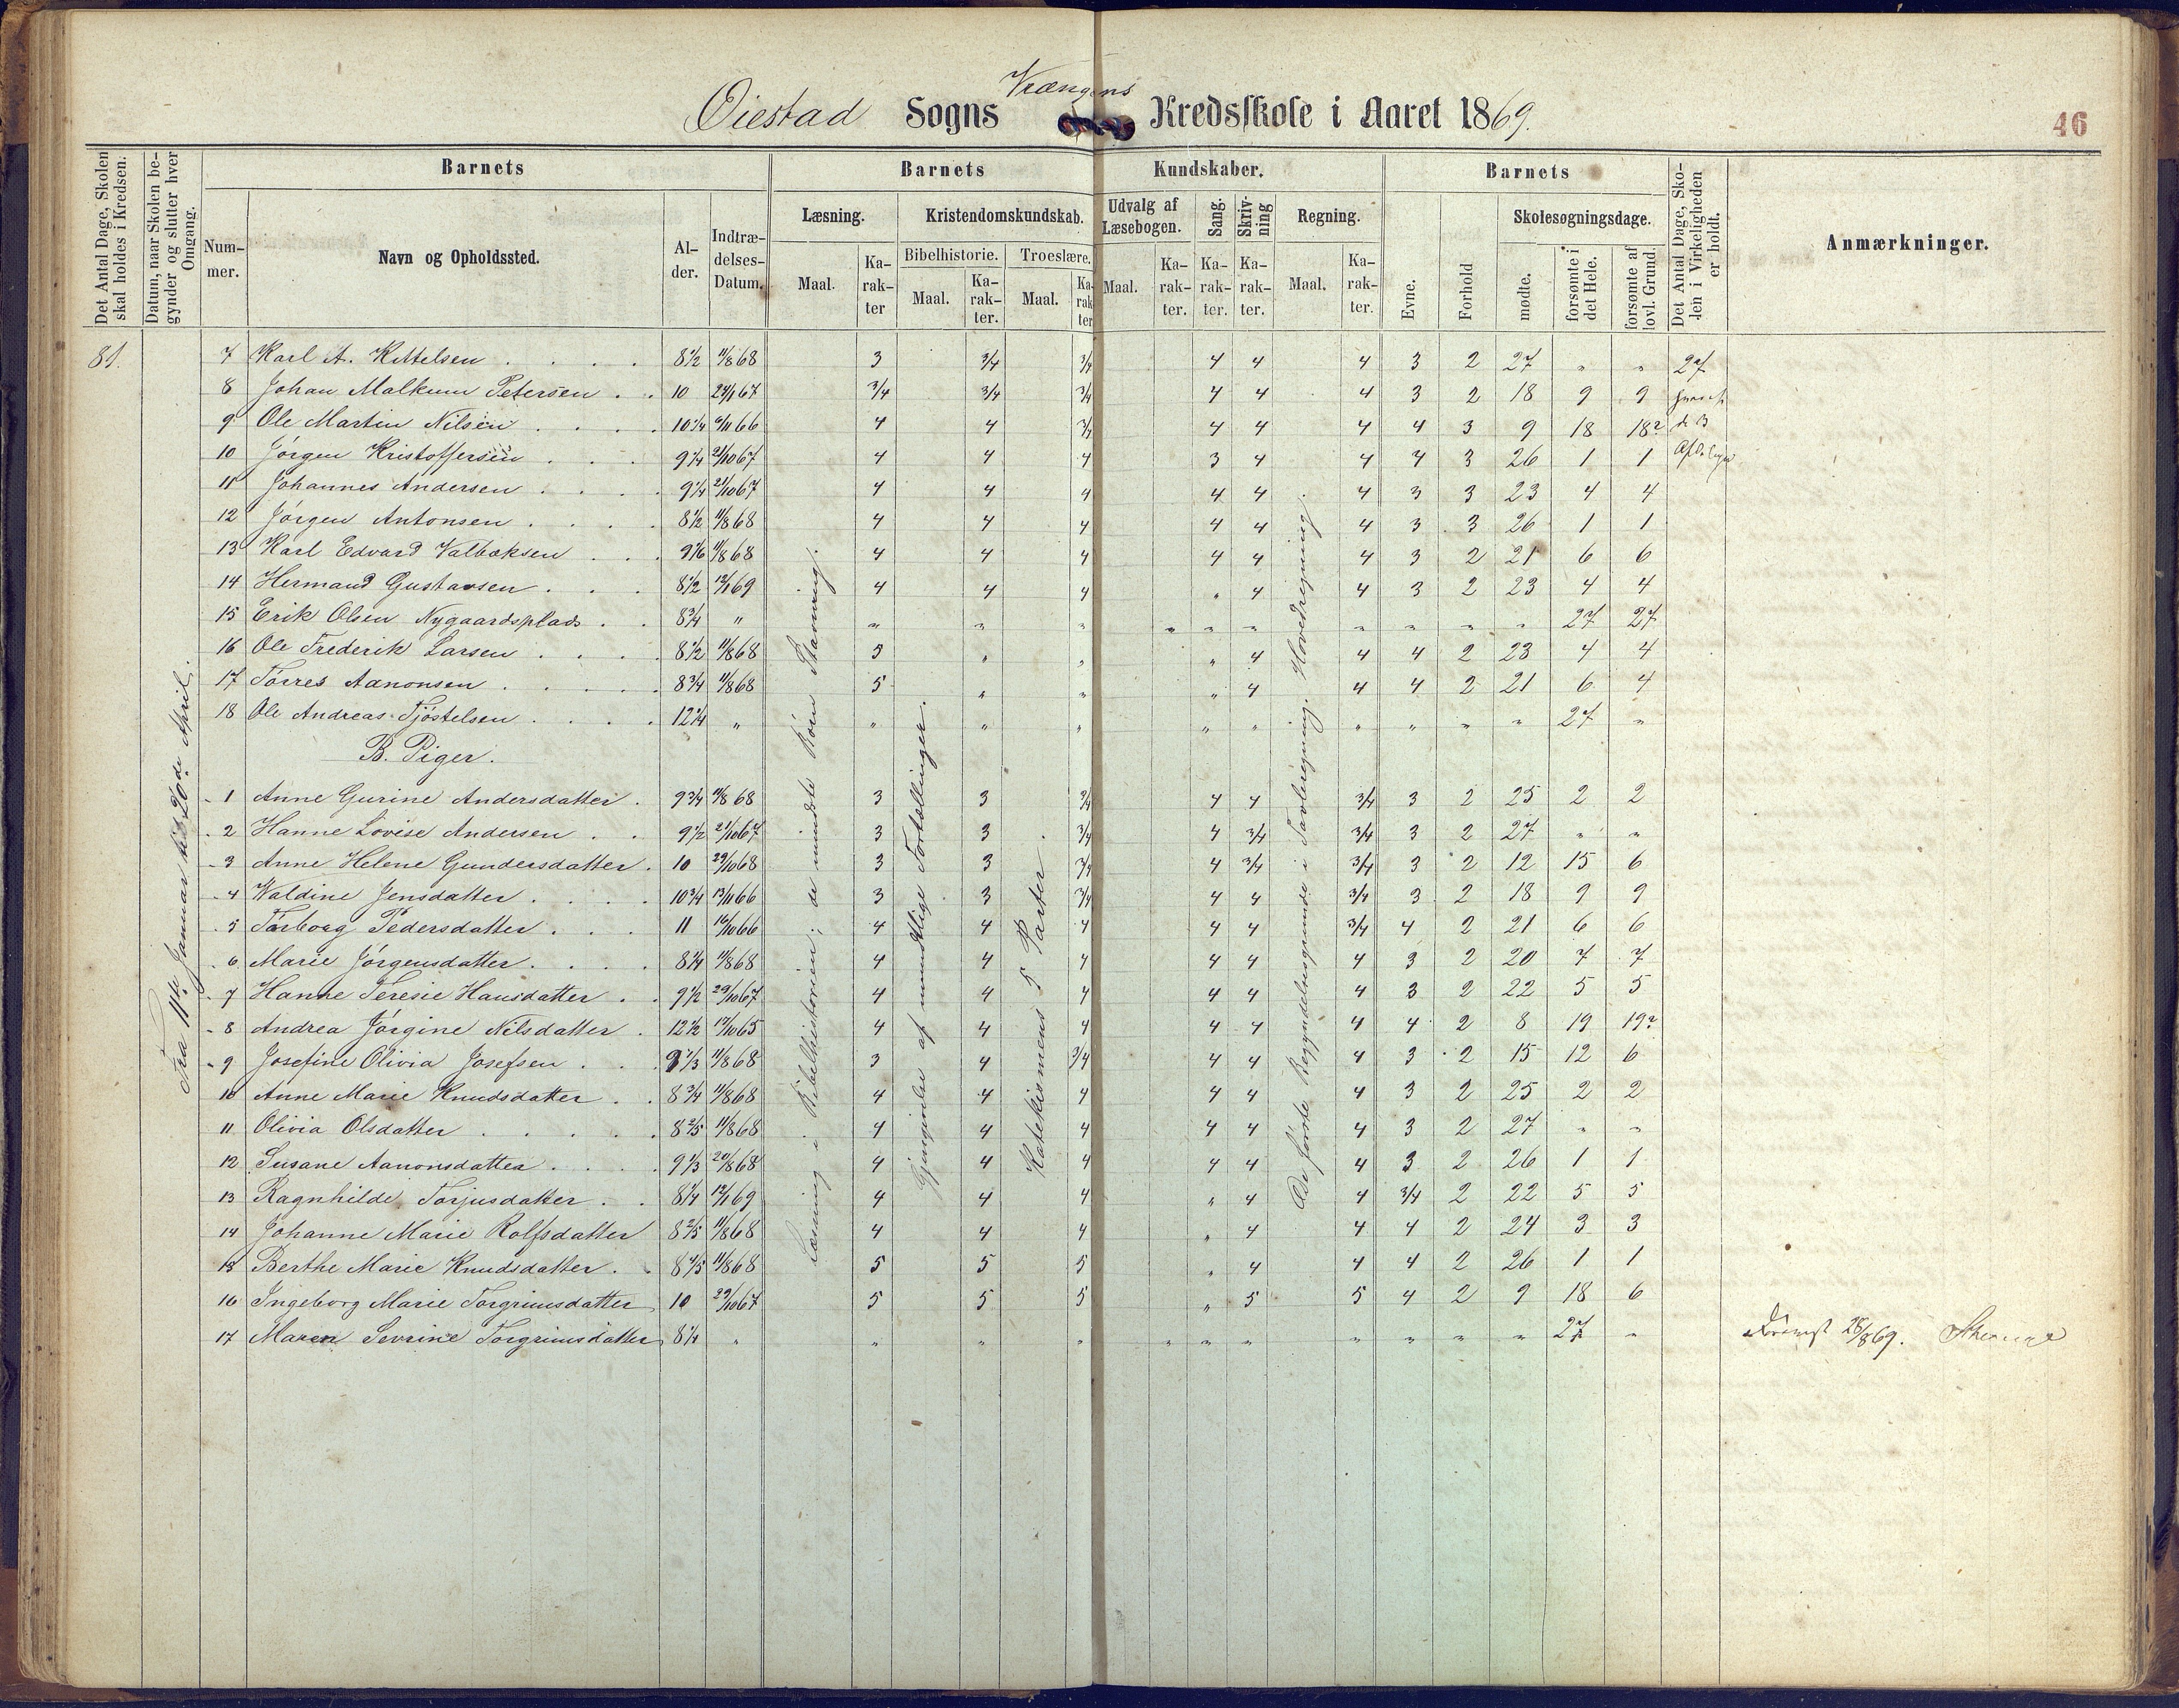 Vrængens
Øiestad Sogns Kredsskole i Aaret 1869.
46
Det Antal Dage, Skolen skal holdes i Kredsen.
Datum, naar Skolen begynder og slutter hver Omgang.
Barnets
Barnets Kundskaber.
Barnets
Det Antal Dage, Skolen i Virkeligheden er holdt.
Anmærkninger.
Nummer.
Navn og Opholdssted.
Alder.
Indtrædelses-Datum.
Læsning.
Kristendomskundskab.
Udvalg af Læsebogen.
Sang.
Skrivning
Regning.
Evne.
Forhold
Skolesøgningsdage.
Bibelhistorie.
Troeslære.
mødte.
forsømte i det Hele.
forsømte af lovl. Grund.
Maal. Karakter Maal. Karakter. Maal. Karakter Maal. Karakter. Karakter. Karakter. Maal. Karakter.
81.
Fra 11te Januar til 20de April.
Læsning i Bibelhistorien; de mindste Børn Stavning.
Gjengivelse af mundtlige Fortællinger.
Katekismens 5 Parter.
De første Begyndelsesgrunde i Tavleregning. Hovedregning.
7 Karl A. Kittelsen 8 1/2 11/8 68 3 3/4 3/4 4 4 4 3 2 27 " " 27
8 Johan Malkum Petersen 10 24/1 67 3/4 3/4 3/4 4 4 4 3 2 18 9 9
9 Ole Martin Nilsen 10 1/4 6/11 66 4 4 3/4 4 4 4 4 3 9 18 18?
10 Jørgen Kristoffersen 9 1/4 21/10 67 4 4 4 3 4 4 4 3 26 1 1
11 Johannes Andersen 9 1/4 21/10 67 4 4 4 4 4 4 3 3 23 4 4
12 Jørgen Antonsen 8 1/2 11/8 68 4 4 4 4 4 4 3 3 26 1 1
13 Karl Edvard Valbøksen 9 1/6 11/8 68 4 4 4 4 4 4 3 2 21 6 6
14 Hermand Gustavsen 8 1/2 12/1 69 4 4 4 " 4 4 3 2 23 4 4
15 Erik Olsen Nygaardsplads 8 3/4 " " " " " " " " " " " 27 27
16 Ole Frederik Larsen 8 1/2 11/8 68 5 " " " 4 4 4 2 23 4 4
17 Tørres Aanonsen 8 3/4 11/8 68 5 " " " 4 4 4 2 21 6 4
18 Ole Andreas Tjøstelsen 12 1/4 " " " " " " " " " " 27 "
B. Piger.
1 Anne Gurine Andersdatter 9 3/4 11/8 68 3 3 3/4 4 4 3/4 3 2 25 2 2
2 Hanne Lovise Andersen 9 1/2 21/10 67 3 3 3/4 4 3/4 3/4 3 2 27 " "
3 Anne Helene Gundersdatter 10 29/10 68 3 3 3/4 4 3/4 3/4 3 2 12 15 6
4 Valdine Jensdatter 10 3/4 13/11 66 3 3 3/4 4 4 3/4 3 2 18 9 9
5 Torborg Pedersdatter 11 16/10 66 4 4 4 4 4 3/4 4 2 21 6 6
6 Marie Jørgensdatter 8 1/4 11/8 68 4 4 4 4 4 4 3 2 20 7 7
7 Hanne Teresie Hansdatter 9 1/2 29/10 67 4 4 4 4 4 4 3 2 22 5 5
8 Andrea Jørgine Nilsdatter 12 1/2 17/10 65 4 4 4 4 4 4 4 2 8 19 19?
9 Josefine Olivia Josefsen 9 1/3 11/8 68 3 4 3/4 4 4 4 3 2 15 12 6
10 Anne Marie Knudsdatter 8 3/4 11/8 68 4 4 4 4 4 4 3 2 25 2 2
11 Olivia Olsdatter 8 2/5 11/8 68 4 4 4 4 4 4 3 2 27 " "
12 Susane Aanonsdatter 9 1/3 20/8 68 4 4 4 4 4 4 3 2 26 1 1
13 Ragnhilde Torjusdatter 8 1/4 12/1 69 4 4 4 " 4 4 3/4 2 22 5 5
14 Johanne Marie Rolfsdatter 8 2/5 11/8 68 4 4 4 " 4 4 4 2 24 3 3
15 Berthe Marie Knudsdatter 8 4/5 11/8 68 5 5 5 " 4 4 4 2 26 1 1
16 Ingeborg Marie Torgrimsdatter 10 29/10 67 5 5 5 " 5 5 4 2 9 18 6
17 Maren Sevrine Torgrimsdatter 8 1/4 " " " " " " " " " " " 27 "
28/8 69.